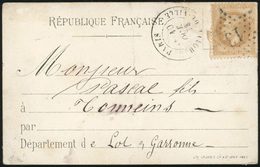 RÉPUBLIQUE FRANÇAISE
PARIS
Monsieur
Pascal fils
à Tonneins
par
Départemt de Lot & Garonne